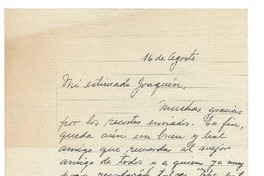 16 de Agosto
Mi estimado Joaquín,
Muchas gracias
por los recortes enviados. En fin,
queda aún un buen y leal
amigo que recuerda al mejor
amigo de todos y a quien ya muy